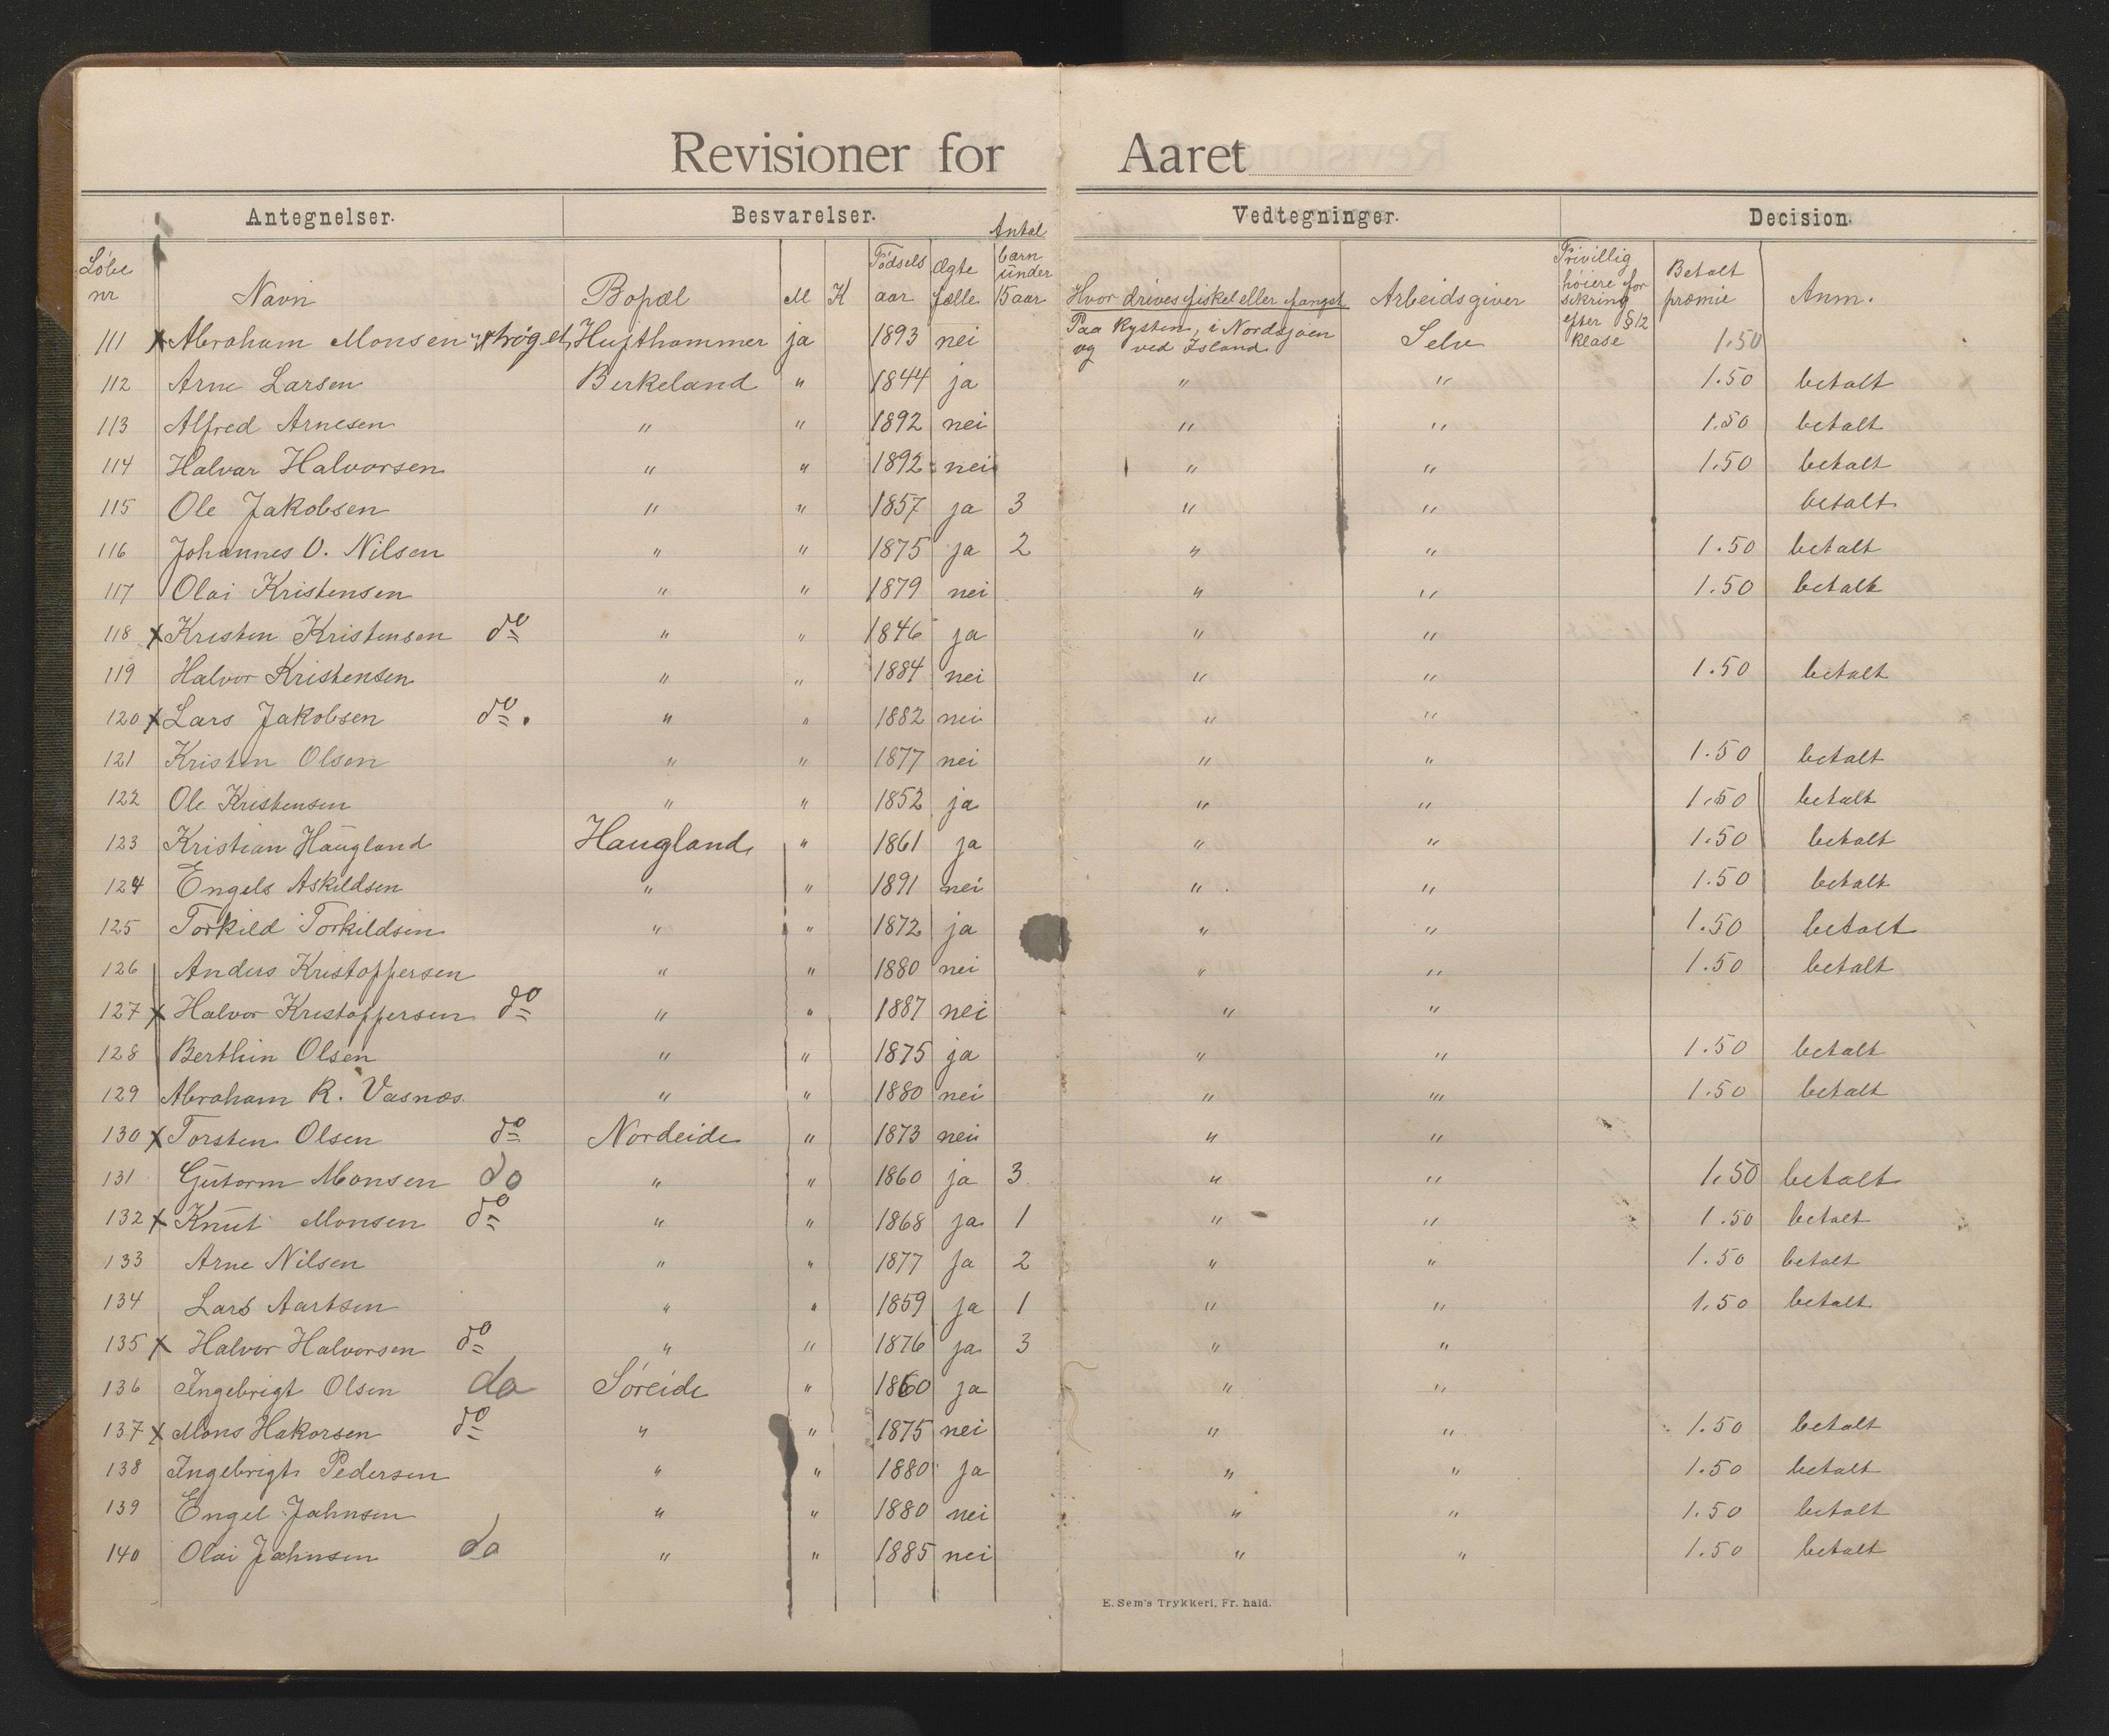 Revisioner for Aaret
Antegnelser. Besvarelser. Vedtegninger. Decision.
Løbe nr Navn Bopæl M K Fødsels aar Ægte fælle Antal barn under 15 aar Hvor drives fisket eller fangst Arbeidsgiver Frivillig høiere for sikring efter §12 klase Betalt præmie Anm.
111 x Abraham Monsen Hufthammer ja 1893 nei Paa kysten, i Nordsjøen og ved Island Selv 1.50
112 Arne Larsen Birkeland " 1844 ja " " 1.50 betalt
113 Alfred Arnesen " " 1892 nei " " 1.50 betalt
114 Halvar Halvorsen " " 1892 nei " " 1.50 betalt
115 Ole Jakobsen " " 1857 ja 3 " " betalt
116 Johannes O. Nilsen " " 1875 ja 2 " " 1.50 betalt
117 Olai Kristensen " " 1879 nei " " 1.50 betalt
118 x Kristen Kristensen do " " 1846 ja " "
119 Halvor Kristensen " " 1884 nei " " 1.50 betalt
120 x Lars Jakobsen do. " " 1882 nei " "
121 Kristen Olsen " " 1877 nei " " 1.50 betalt
122 Ole Kristensen " " 1852 ja " " 1.50 betalt
123 Kristian Haugland Haugland " 1861 ja " " 1.50 betalt
124 Engels Askildsen " " 1891 nei " " 1.50 betalt
125 Torkild Torkildsen " " 1872 ja " " 1.50 betalt
126 Anders Kristoffersen " " 1880 nei " " 1.50 betalt
127 x Halvor Kristoffersen do " " 1887 nei " "
128 Berthin Olsen " " 1875 ja " " 1.50 betalt
129 Abraham R. Vasnæs " " 1880 nei " " 1.50 betalt
130 x Torsten Olsen do Nordeide " 1873 nei " "
131 Gutorm Monsen do " " 1860 ja 3 " " 1.50 betalt
132 x Knut Monsen do " " 1868 ja 1 " " 1.50 betalt
133 Arne Nilsen " " 1877 ja 2 " " 1.50 betalt
134 Lars Aartsen " " 1859 ja 1 " " 1.50 betalt
135 x Halvor Halvorsen do " " 1876 ja 3 " "
136 Ingebrigt Olsen do Søreide " 1860 ja " "
137 x Mons Hakorsen do " " 1875 nei " " 1.50 betalt
138 Ingebrigt Pedersen " " 1880 ja " " 1.50 betalt
139 Engel Jahnsen " " 1880 nei " " 1.50 betalt
140 Olai Jahnsen do " " 1885 nei " " 1.50 betalt
E. Sem's Trykkeri, Fr. hald.